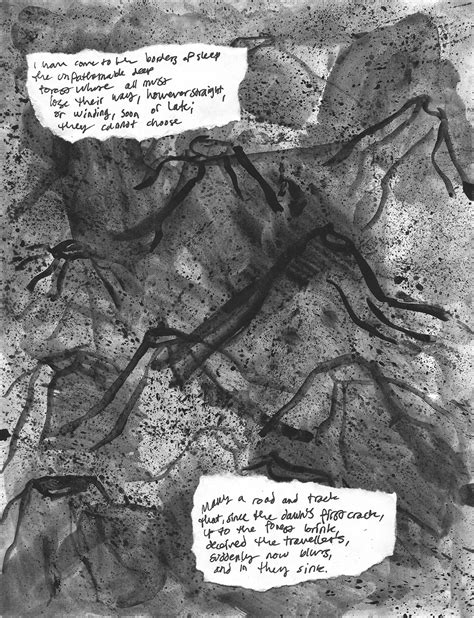 I have come to the borders of sleep
the unfathomable deep
forest where all must
lose their way, however straight,
or winding, soon or late;
they cannot choose
Many a road and track
that, since the dawn's first crack,
up to the forest brink,
deceived the travellers,
suddenly now blurs,
and in they sink.